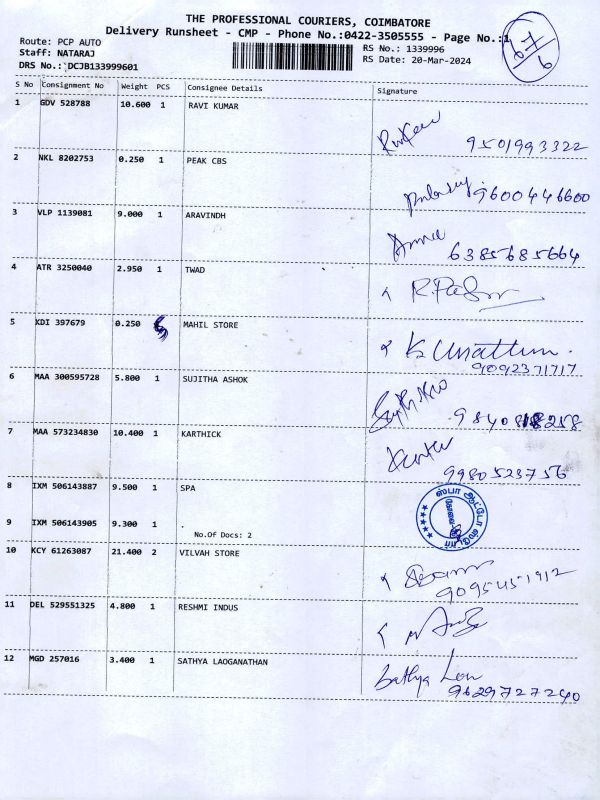 THE PROFESSIONAL COURIERS, COIMBATORE
Delivery Runsheet - CMP - Phone No.:0422-3505555 - Page No.:1
67
6
Route: PCP AUTO
RS No.: 1339996
Staff: NATARAJ
RS Date: 20-Mar-2024
DRS No.: DCJB133999601
S No Consignment No Weight PCS Consignee Details Signature
1 GDV 528788 10.600 1 RAVI KUMAR
9501993322
2 NKL 8202753 0.250 1 PEAK CBS
9600446600
3 VLP 1139081 9.000 1 ARAVINDH
6385685664
4 ATR 3250040 2.950 1 TWAD
5 KDI 397679 0.250 MAHIL STORE
9092371717
6 MAA 300595728 5.800 1 SUJITHA ASHOK
9840818258
7 MAA 573234830 10.400 1 KARTHICK
9980523756
8 IXM 506143887 9.500 1 SPA
9 IXM 506143905 9.300 1
No.Of Docs: 2
10 KCY 61263087 21.400 2 VILVAH STORE
9095451912
11 DEL 529551325 4.800 1 RESHMI INDUS
12 MGD 257016 3.400 1 SATHYA LAOGANATHAN
Sathya
9629727240